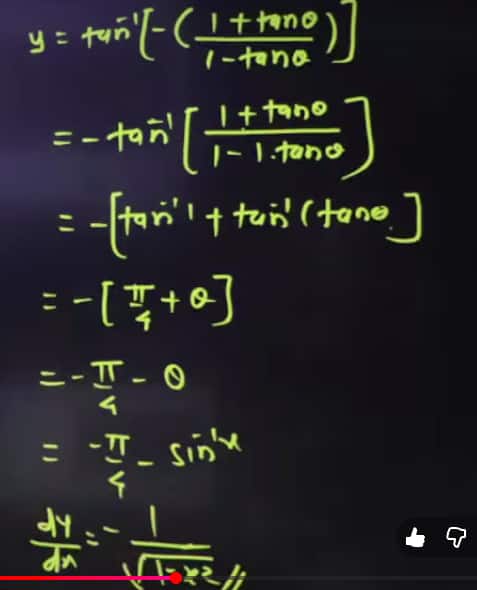 y = tan⁻¹[-(1+tanθ/1-tanθ)]
= -tan⁻¹[1+tanθ/1-1.tanθ]
= -[tan⁻¹1 + tan⁻¹(tanθ]
= -[π/4 + θ]
= -π/4 - θ
= -π/4 - sin⁻¹x
dy/dx = - 1/√1-x² //